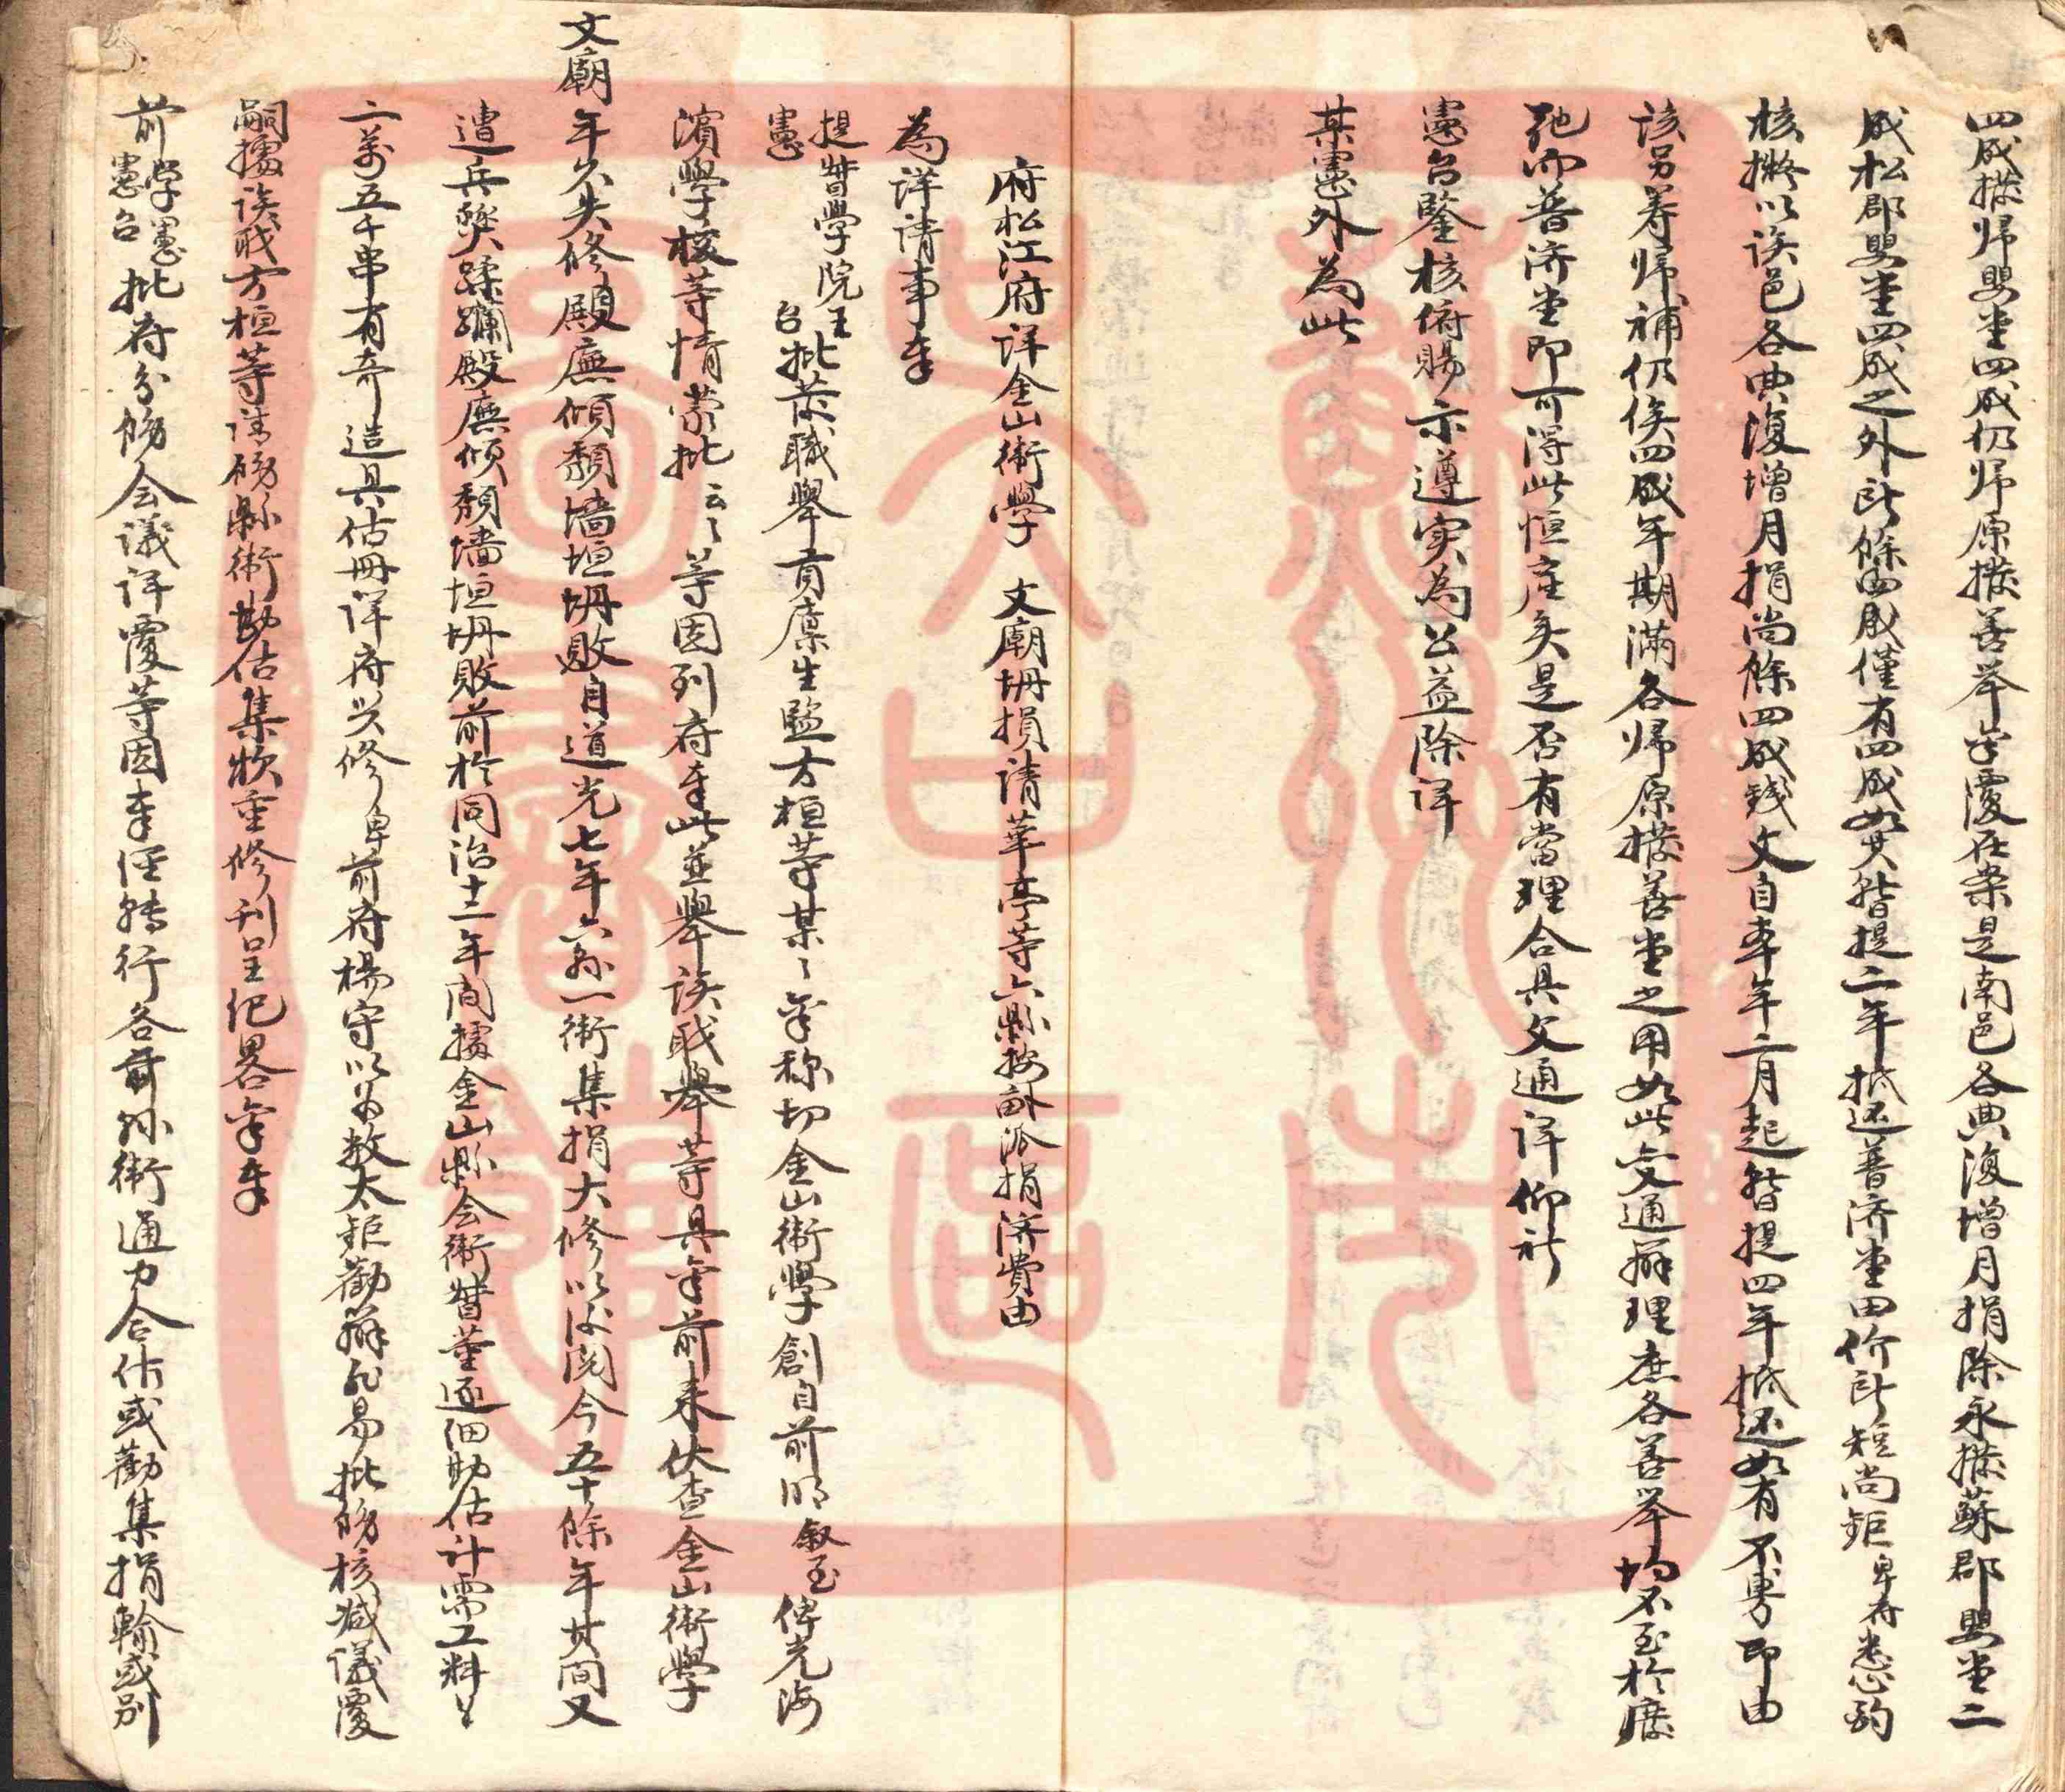 四成撥归嬰堂四成仍归原撥善举字覆在案是南邑各典復增月捐除永撥蘇郡嬰堂二
成松郡嬰堂四成之外所餘四成僅有四成如其暫提二年抵还普济堂田价所短尚鉅卑府悉酌
核擬以该邑各典復增月捐尚餘四成錢文自本年二月起暫提四年抵还如有不旉即由
该另筹归補仍俟四成年期滿各归原撥善堂之用如此变通辦理庶各善举均不至於廢
弛而普济堂即可得此恒産矣是否有當理合具文通详仰祈
憲台鑒核俯賜示遵实為公益除详
某憲外為此
府松江府详金山衛學 文廟坍損请華亭等六縣按畝派捐济費由
為详请事奉
提督學院王
憲台批발職舉貢廩生監方桓等某〻寔称切金山衛學創自前明叙至俾光海
濱學校等情蒙批云〻等因到府奉此並舉该职舉等具寔前来伏查金山衛學
文廟年久失修殿廡傾頹墙垣坍敗自道光七年六縣一衛集捐大修以後閲今五十餘年其间又
遭兵燹蹂躪殿廡傾頹墻垣坍敗前於同治十二年间據金山縣会衛督董逐细勘估计需工料〻
二萬五千串有奇造具估冊详府兴修卑前府楊守以为数太鉅勸辦非易批飭核減議覆
嗣據该职方桓等请飭縣衛勘估集款重修刊呈纪畧寔奉
前學憲
憲台批府分飭会議详覆等因奉经转行各前縣衛通力合作或勸集捐輸或別